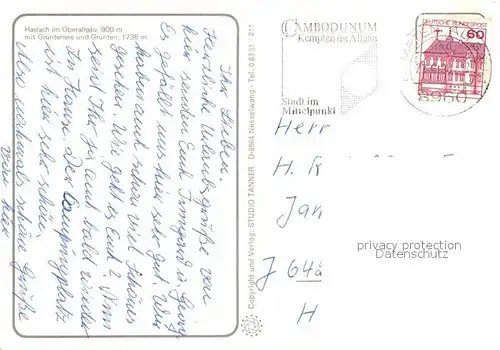 Haslach im Oberallgäu, 900 m
mit Grüntensee und Grünten, 1738 m
Ihr Lieben,
Herzliche Urlaubsgrüße von
hier senden Euch Irmgard u.
Es gefällt uns hier sehr gut. Wir
haben auch schon viel Schönes
gesehen. Wie geht es Euch? Nun
seid Ihr ja auch bald wieder
zu Hause. Der Campingplatz
ist hier sehr schön.
Also nochmals schöne Grüße
von hier
Copyright und Verlag: STUDIO TANNER · D-8964 Nesselwang · Tel. 08361 · 211
CAMBODUNUM
Kempten im Allgäu
Stadt im
Mittelpunkt
DEUTSCHE BUNDESPOST
60
8960
Herr
H.
Jan
privacy protection
Datenschutz
H